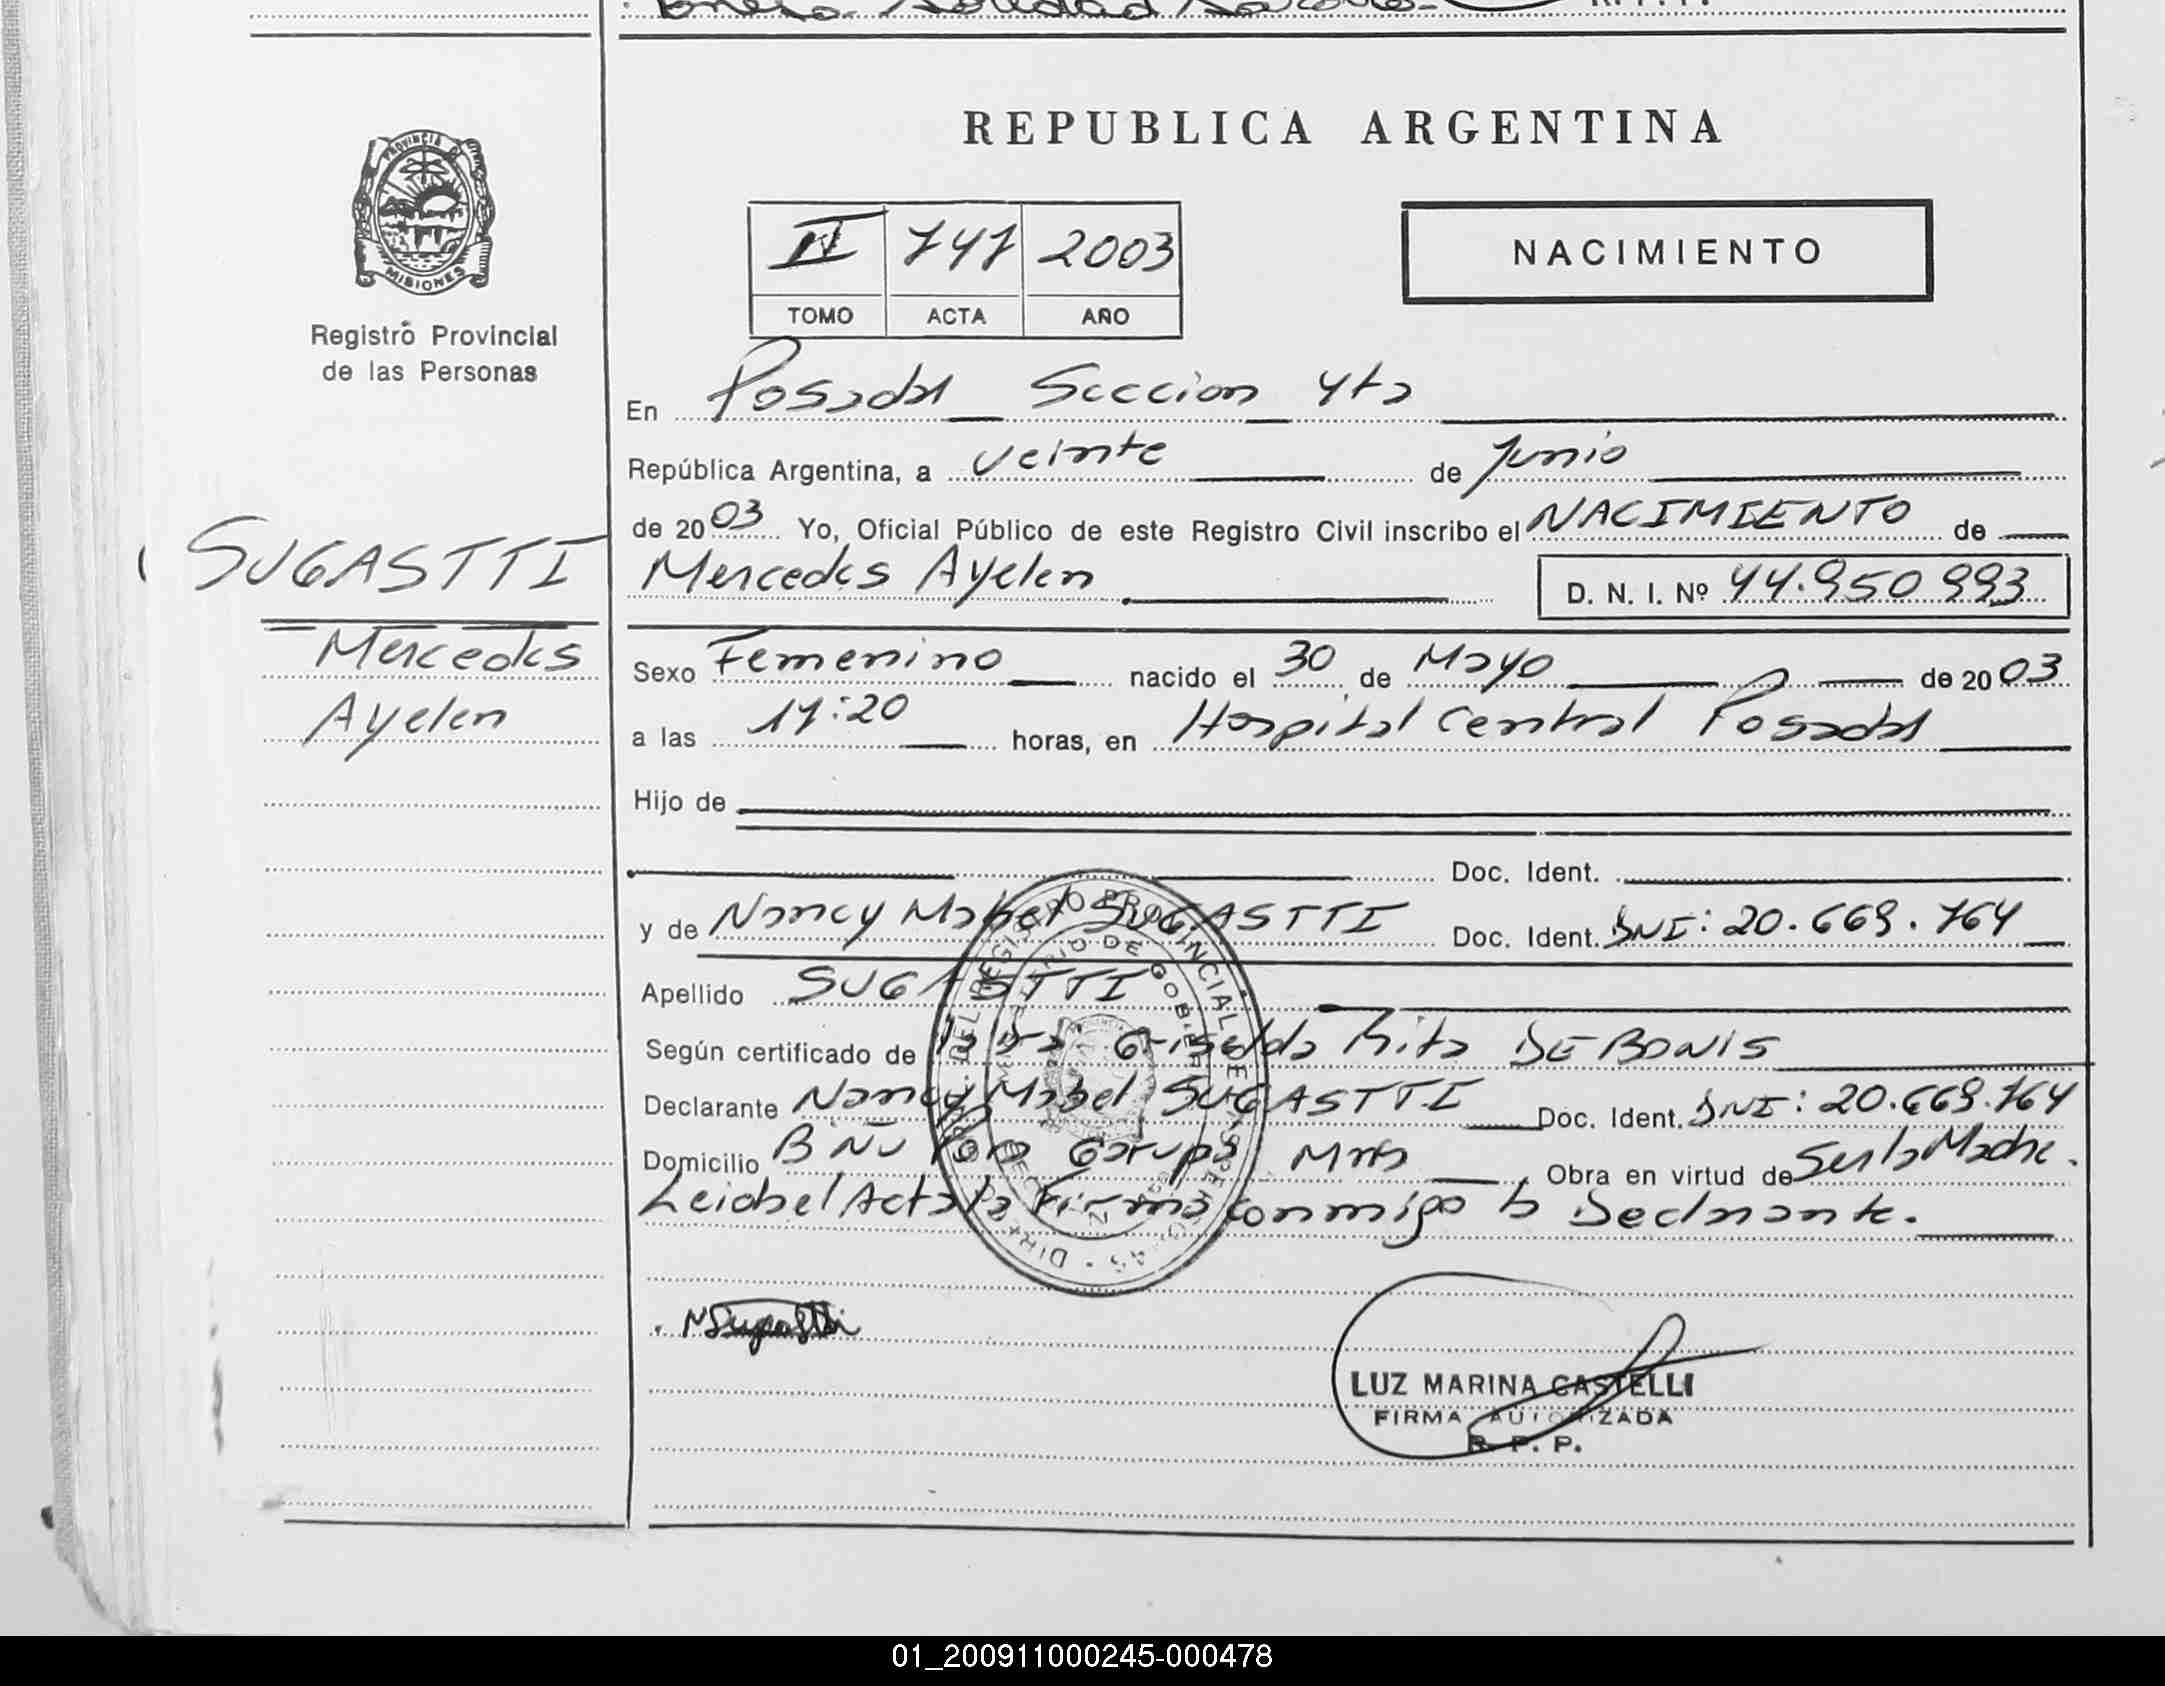 PROVINCIA DE
MISIONES
Registro Provincial
de las Personas
SUGASTTI
Mercedes
Ayelen
REPUBLICA ARGENTINA
NACIMIENTO
2003
TOMO ACTA AÑO
En Posadas Seccion 4ta
República Argentina, a veinte de Junio
de 2003 Yo, Oficial Público de este Registro Civil inscribo el NACIMIENTO de
Mercedes Ayelen D. N. I. Nº 44.950.993
Sexo Femenino nacido el 30 de Mayo de 2003
a las :20 horas, en Hospital Central Posadas
Hijo de
Doc. Ident.
y de Nancy Mabel SUGASTTI Doc. Ident. DNI: 20.669.764
Apellido SUGASTTI
Según certificado de Griselda Rita DE BONIS
Declarante Nancy Mabel SUGASTTI Doc. Ident. DNI: 20.669.764
Domicilio B Ñu Pora Garupá Mnes Obra en virtud de Ser la Madre.
Leida el Acta la Firma conmigo la Declarante.
NSugastti
LUZ MARINA CASTELLI
FIRMA AUTORIZADA
R. P. P.
01_200911000245-000478